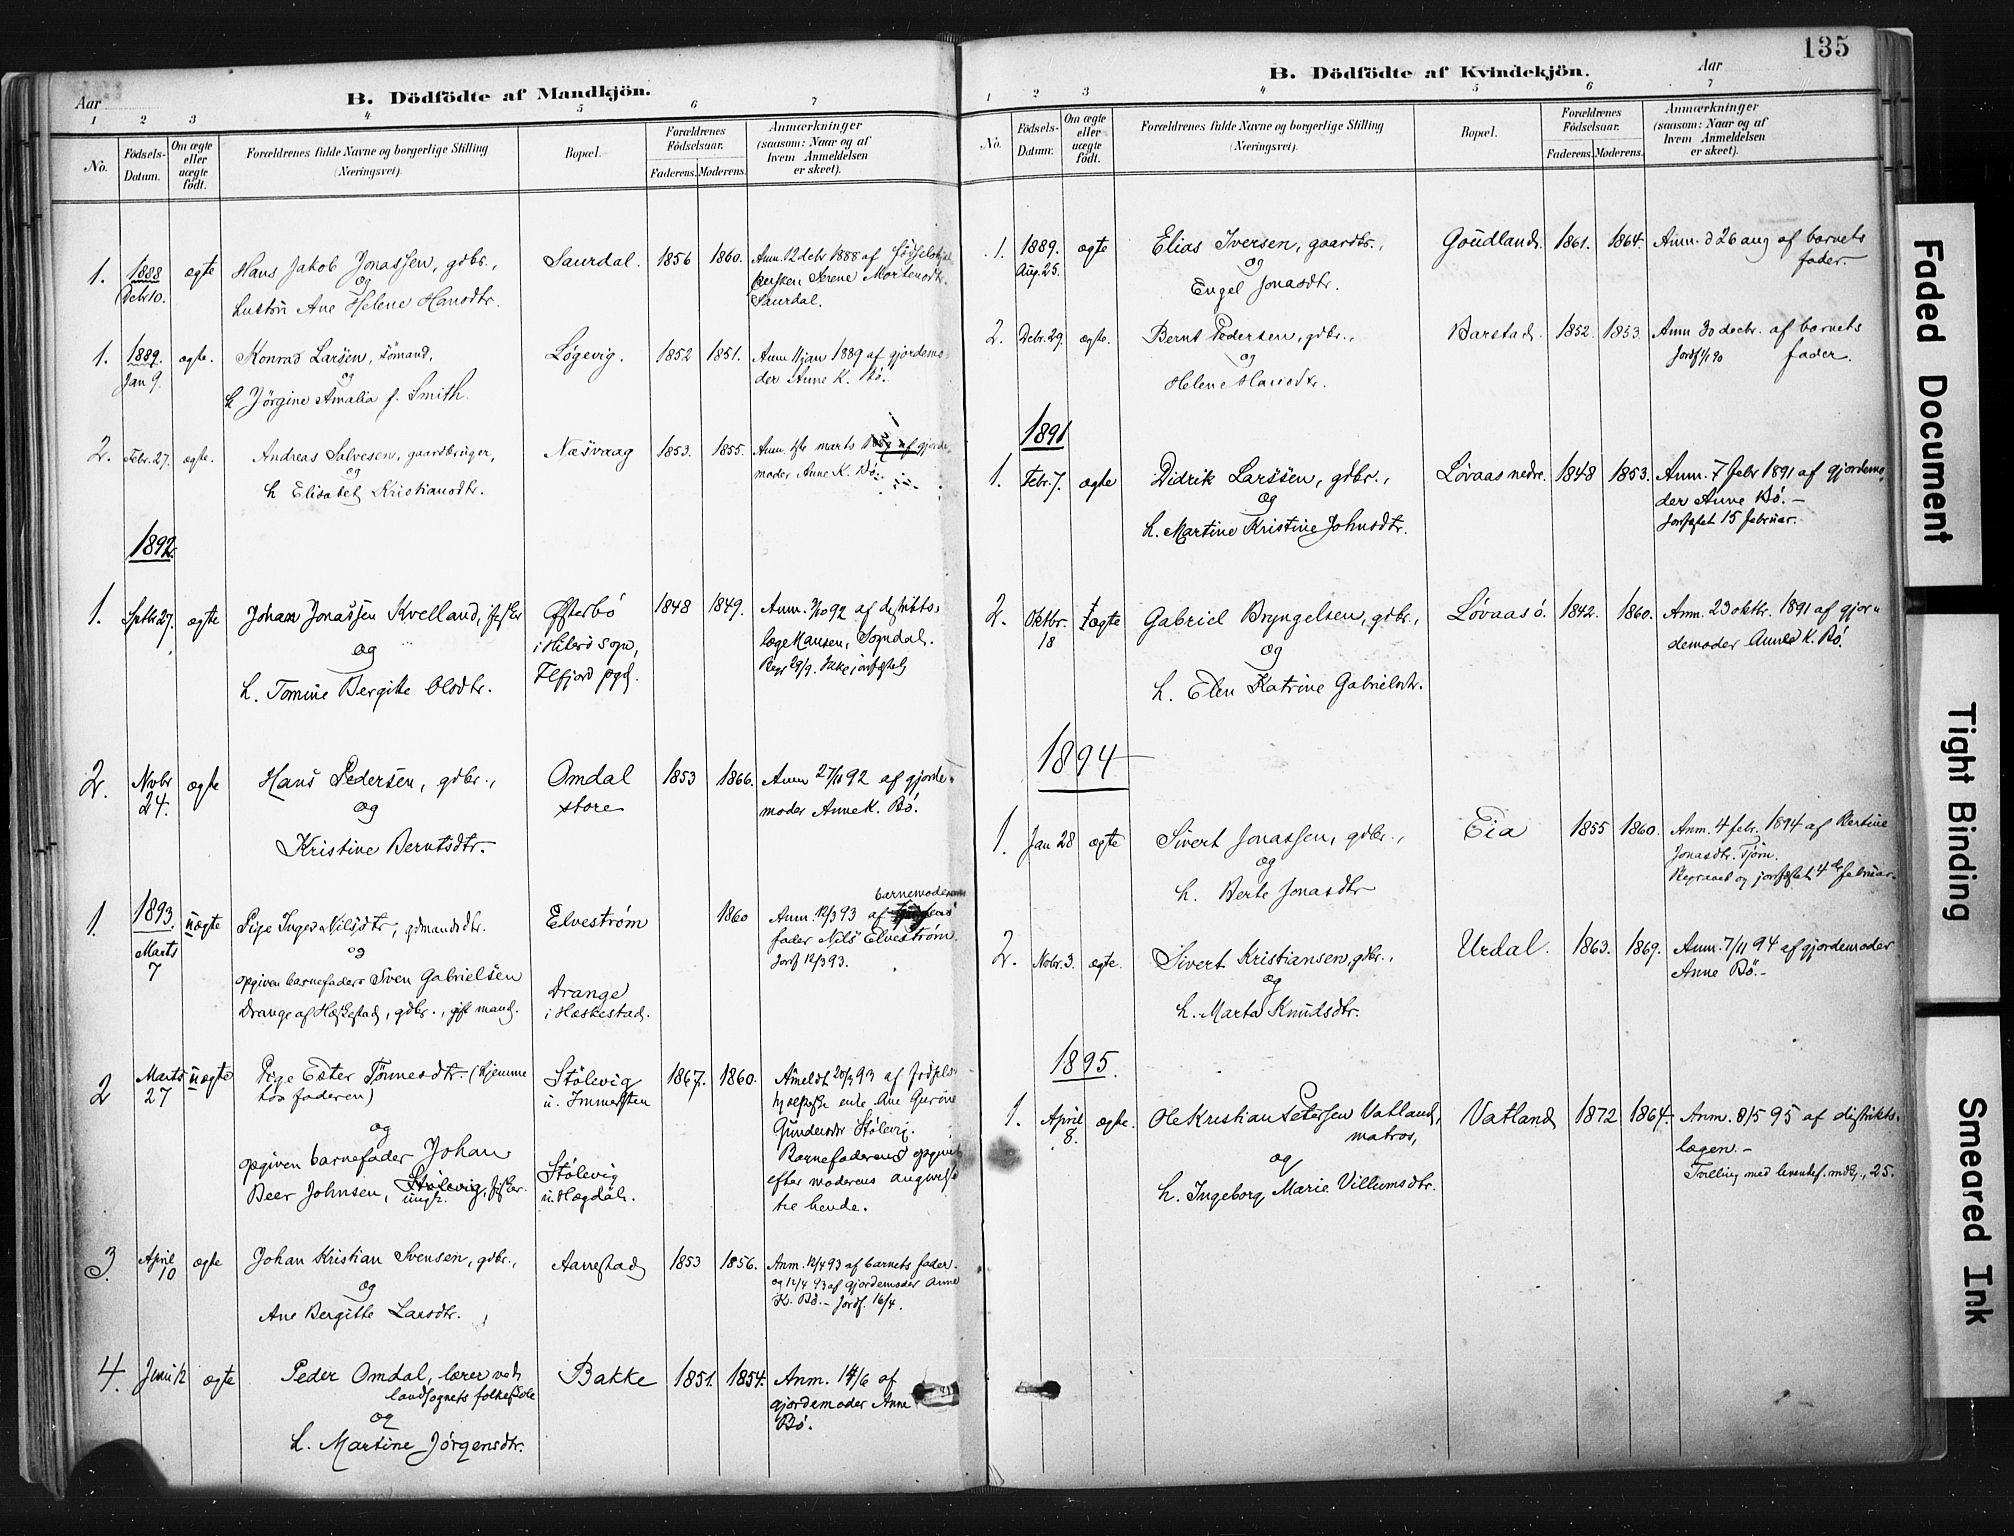 Aar
B. Dödfödte af Mandkjön.
1 2 3 4 5 6 7
No. Födsels-Datum. Om ægte eller uægte födt. Forældrenes fulde Navne og borgerlige Stilling (Næringsvei). Bopæl. Forældrenes Födselsaar. Faderens. Moderens. Anmærkninger (saasom: Naar og af hvem Anmeldelsen er skeet).
1. 1888 Debr 10. ægte Hans Jakob Jonassen, gdbr., Saurdal. 1856 1860. Anm. 12 debr 1888 af
og
hustru Ane Helene Hansdtr. Serene Mortensdtr. Saurdal.
1. 1889. Jan 9. ægte. Konrad Larsen, sömand, Løgevig. 1852 1851. Anm 11 jan 1889 af gjordemo
og
h Jörgine Amalia f. Smith. der Anne K. Bö.
2. Febr. 27. ægte. Andreas Salvesen, gaardbruger, Næsvaag 1853. 1855. Anm. marts af gjorde
og
h Elisabet Kristiansdtr. moder Anne K. Bö.
1892.
1. Septbr 27. ægte Johan Jonassen Kvelland, fisker 1848 1849. Anm. 92 af distrikts-
og
i Hiterö sogn, læge Hansen, Sogndal.
h. Tomine Bergitte Olsdtr. Flfjord pgd.
2. Novbr 24. ægte Hans Pedersen, gdbr., Omdal store 1853 1866. Anm 27/11 92 af gjorde-
og
moder Anne K. Bö.
Kristine Berntsdtr.
1. 1893. Marts 7 uægte Pige Inger Nilsdtr, gdmandsdtr. Elvestrøm 1860 Anm. 12/3 93 af barnemoderens
og
fader Nils Elvestrøm.
Jordf 12/3 93.
opgiven barnefader Sven Gabrielsen
Drange af Heskestad, gdbr., gift mand. Drange i Heskestad.
2 Marts 27 uægte Pige Ester Tönnesdtr. (hjemme hos faderen) Stölevig u. 1867. 1860. Anmeldt 93 af
enke Ane Gurine
og
Gundersdtr Stölevig.
opgiven barnefader Johan Barnefaderen opgivet
Beer Johnsen, Stölevig, fisker. ungk. Stölevig u. Hægdal. efter moderens angivelse
til hende.
3. April 10 ægte Johan Kristian Svensen, gdbr., Aarrestad 1853 1856. Anm. 12/4 93 af barnets fader.
og
og 12/4 93 af gjordemoder Anne
Ane Bergitte Larsdtr. K. Bö. – Jordf. 16/4.
4. Juni 12 ægte Peder Omdal, lærer ved Bakke 1851. 1854. Anm. 14/6 af
landsognets folkeskole gjordemoder Anne
og
Bö.
h. Martine Jörgensdtr.
135
B. Dödfödte af Kvindekjön.
Aar
1 2 3 4 5 6 7
No. Födsels-Datum. Om ægte eller uægte födt. Forældrenes fulde Navne og borgerlige Stilling (Næringsvei). Bopæl. Forældrenes Födselsaar. Faderens. Moderens. Anmærkninger (saasom: Naar og af hvem Anmeldelsen er skeet).
1. 1889. Aug. 25. ægte Elias Iversen, gaardbr., Goudland. 1861. 1864. Anm. d 26 aug af barnets
og
fader.
Engel Jonasdtr.
2. Debr. 29. ægte. Bernt Pedersen, gdbr., Barstad. 1852. 1853. Anm 30 decbr. af barnets
og
Jordf 90 fader.
Helene Hansdtr.
1891
1. Febr. 7. ægte Didrik Larssen, gdbr., Løvaas nedre. 1848 1853. Anm. 7 febr 1891 af gjordemo
og
der Anne Bö. –
h. Martine Kristine Johnsdtr. Jordfæstet 15 februar.
2. Oktbr. 18 ægte Gabriel Bryngelsen, gdbr., Løvaasö. 1842. 1860. Anm. 23 oktbr. 1891 af gjor-
og
demoder Anne K. Bö.
h. Elen Katrine Gabrielsdtr.
1894
1. Jan 28 ægte Sivert Jonassen, gdbr., Eia 1855 1860. Anm. 4 febr. 1894 af Bertine
og
Jonasdtr. Tjörn.
h. Berte Jonasdtr Begravet og jordfæstet 4de februar.
2. Nobr. 3. ægte. Sivert Kristiansen, gdbr., Urdal. 1863. 1869. Anm. 7/11 94 af gjordemoder
og
Anne Bö. –
h. Marta Knudsdtr.
1895.
1. April 8. ægte. Ole Kristian Petersen Vatland, Vatland 1872 1864. Anm. 8/5 95 af distrikts-
matros, lægen. –
og
Tvilling med levendef. mdkj., 25.
h. Ingeborg Marie Villumsdtr.
Faded Document
Tight Binding
Smeared Ink